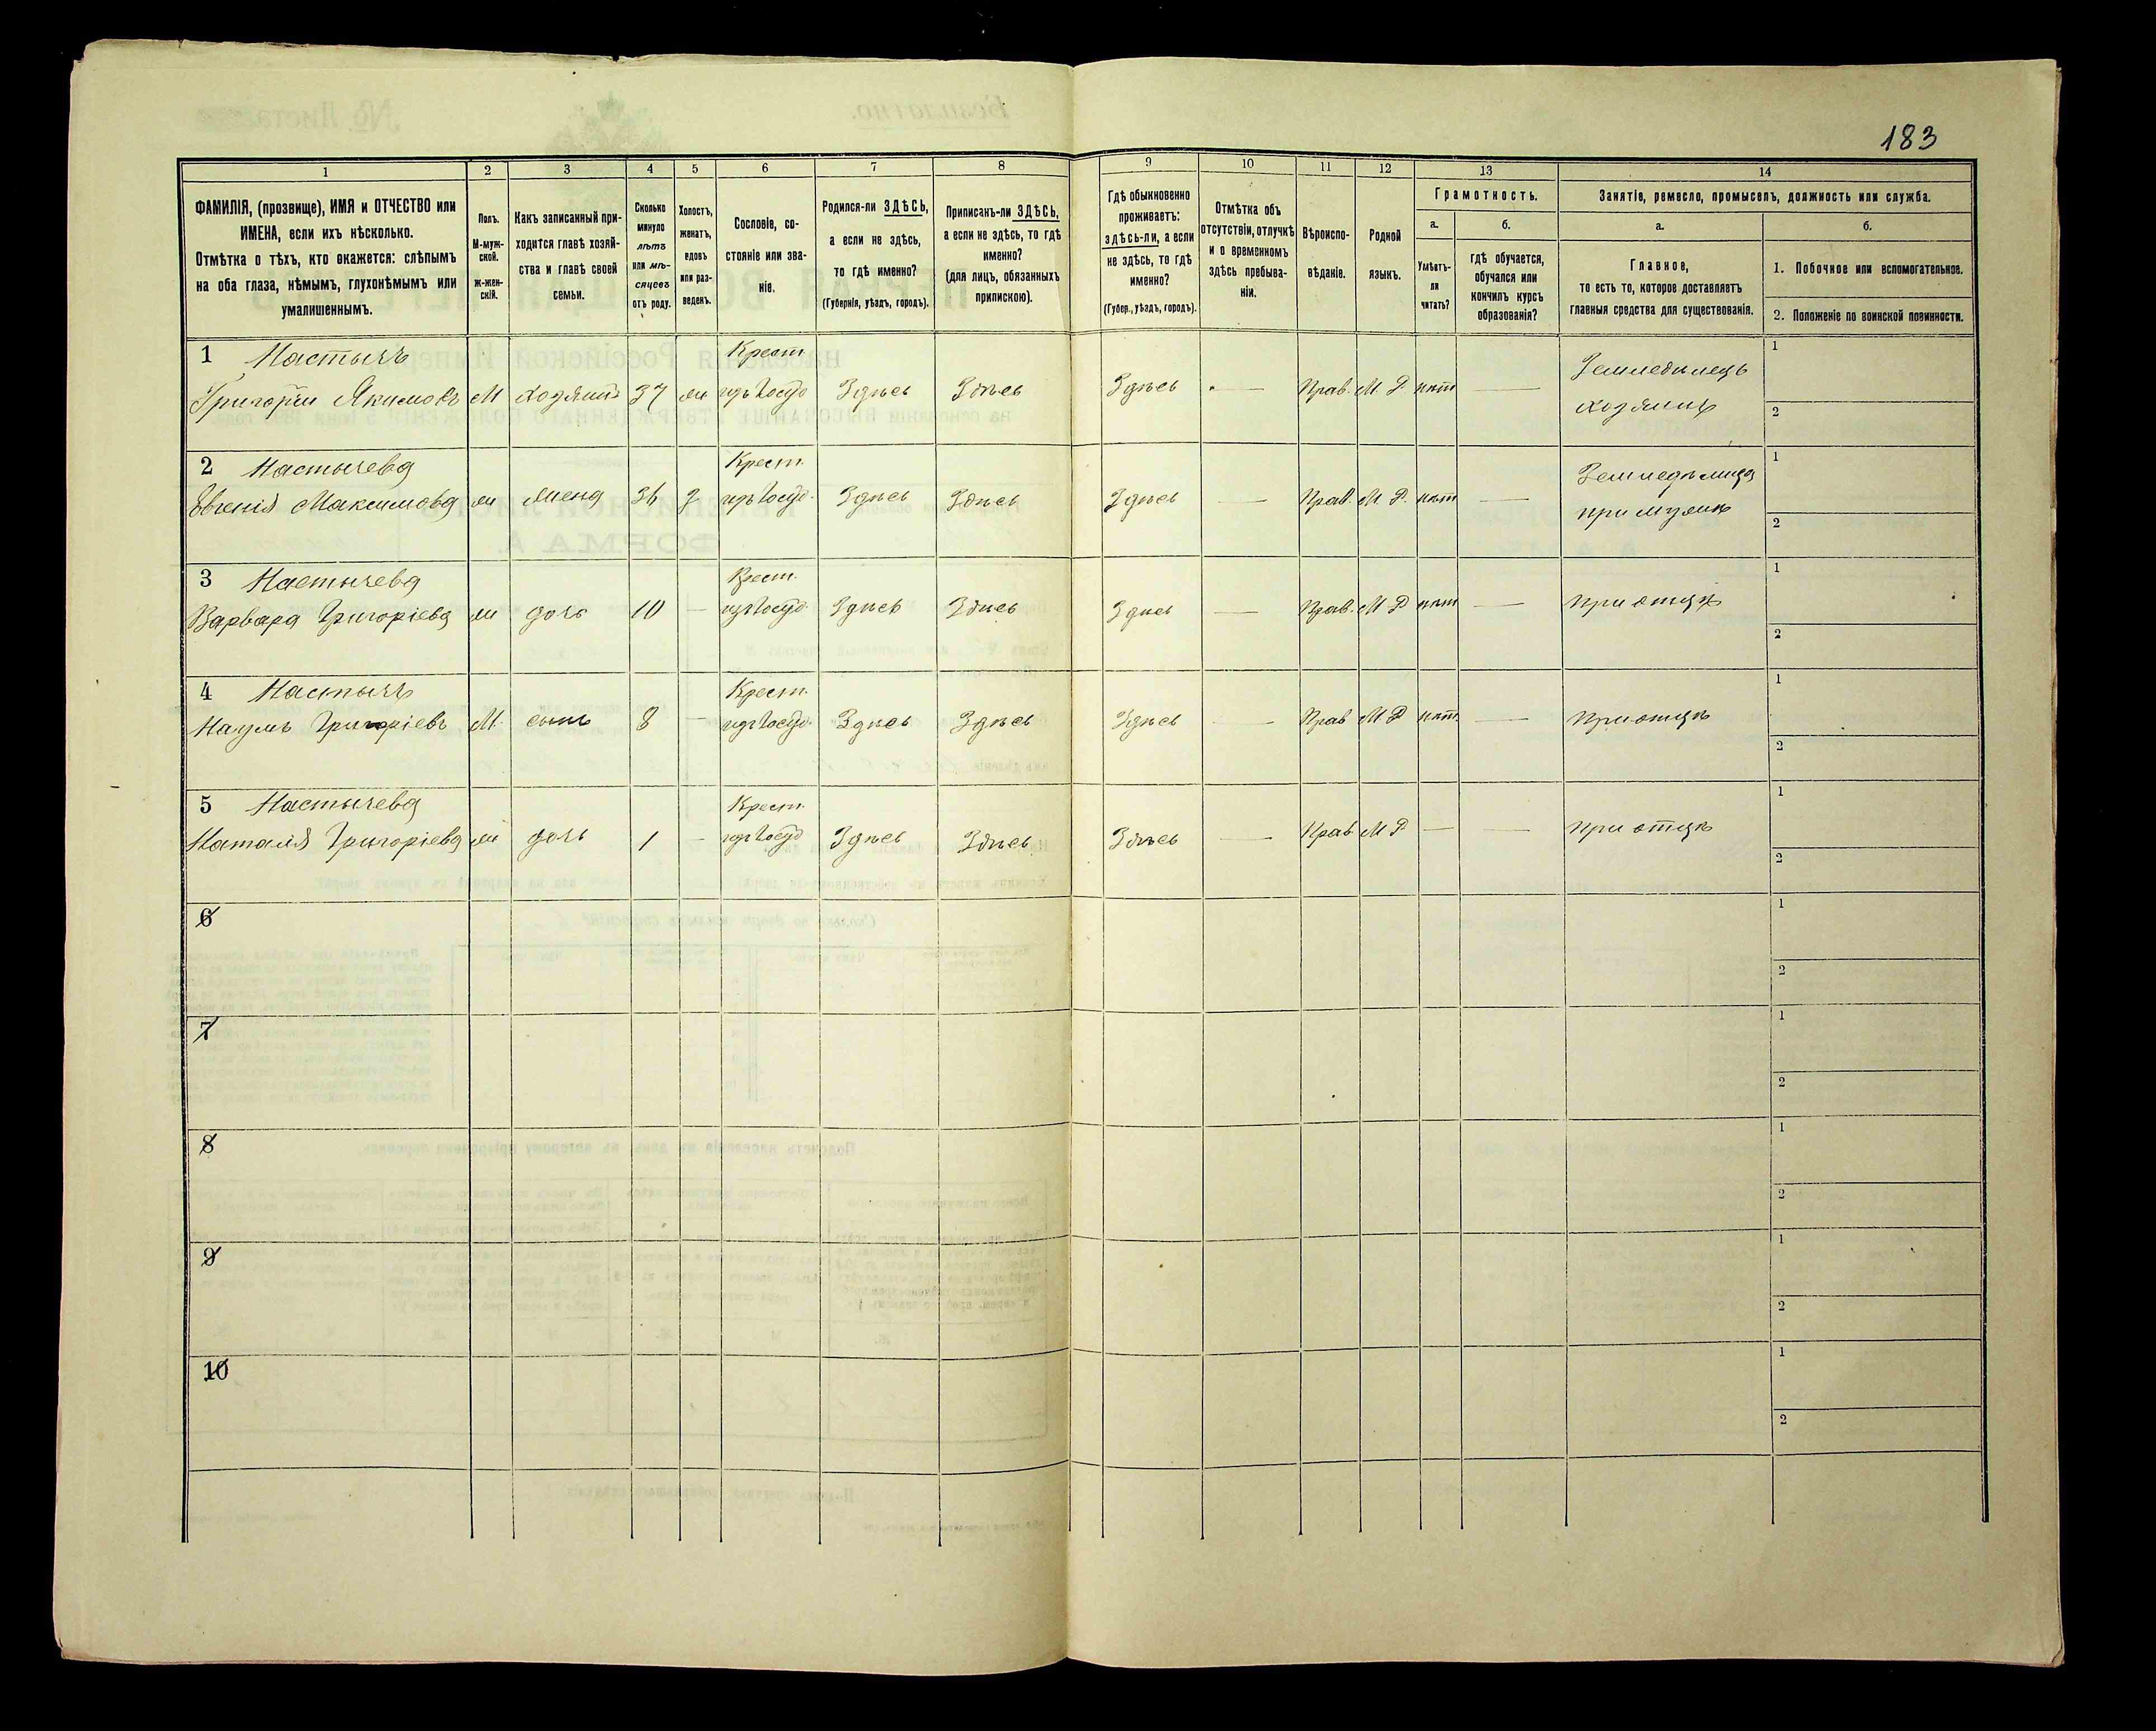 183
1 2 3 4 5 6 7 8 9 10 11 12 13 14
ФАМИЛІЯ, (прозвище), ИМЯ и ОТЧЕСТВО или
ИМЕНА, если ихъ нѣсколько.
Отмѣтка о тѣхъ, кто окажется: слѣпымъ
на оба глаза, нѣмымъ, глухонѣмымъ или
умалишеннымъ.
Полъ.
М-муж-
ской.
ж-жен-
скій.
Какъ записанный при-
ходится главѣ хозяй-
ства и главѣ своей
семьи.
Сколько
минуло
лѣтъ
или мѣ-
сяцевъ
отъ роду.
Холостъ,
женатъ,
вдовъ
или раз-
веденъ.
Сословіе, со-
стояніе или зва-
ніе.
Родился-ли ЗДѢСЬ,
а если не здѣсь,
то гдѣ именно?
(Губернія, уѣздъ, городъ).
Приписанъ-ли ЗДѢСЬ,
а если не здѣсь, то гдѣ
именно?
(для лицъ, обязанныхъ
припискою).
Гдѣ обыкновенно
проживаетъ:
здѣсь-ли, а если
не здѣсь, то гдѣ
именно?
(Губер., уѣздъ, городъ).
Отмѣтка объ
отсутствіи, отлучкѣ
и о временномъ
здѣсь пребыва-
ніи.
Вѣроиспо-
вѣданіе.
Родной
языкъ.
Грамотность.
а.
Умѣетъ-
ли
читать?
б.
гдѣ обучается,
обучался или
кончилъ курсъ
образованія?
Занятіе, ремесло, промыселъ, должность или служба.
а.
Главное,
то есть то, которое доставляетъ
главныя средства для существованія.
б.
1. Побочное или вспомогательное.
2. Положеніе по воинской повинности.
1 Настычъ Крест. Земледѣлецъ 1
Григорій Якимовъ М хозяинъ 37 ж изъ Госуд Здѣсь Здѣсь Здѣсь — Прав. М Р. нѣт — хозяинъ 2
2 Настычева Крест. Земледѣлица 1
Евгенія Максимова ж жена 36 з изъ Госуд. Здѣсь Здѣсь Здѣсь — Прав. М Р. нѣт — при мужѣ 2
3 Настычева Крест. 1
Варвара Григоріева ж дочь 10 — изъ Госуд. Здѣсь Здѣсь Здѣсь — Прав. М Р нѣт — при отцѣ 2
4 Настычъ Крест. 1
Наумъ Григоріевъ М. сынъ 8 — изъ Госуд. Здѣсь Здѣсь Здѣсь — Прав М Р нѣт. — при отцѣ 2
5 Настычева Крест. 1
Наталія Григоріева ж дочь 1 — изъ Госуд Здѣсь Здѣсь Здѣсь — Прав М Р — — при отцѣ 2
6 1
2
7 1
2
8 1
2
9 1
2
10 1
2